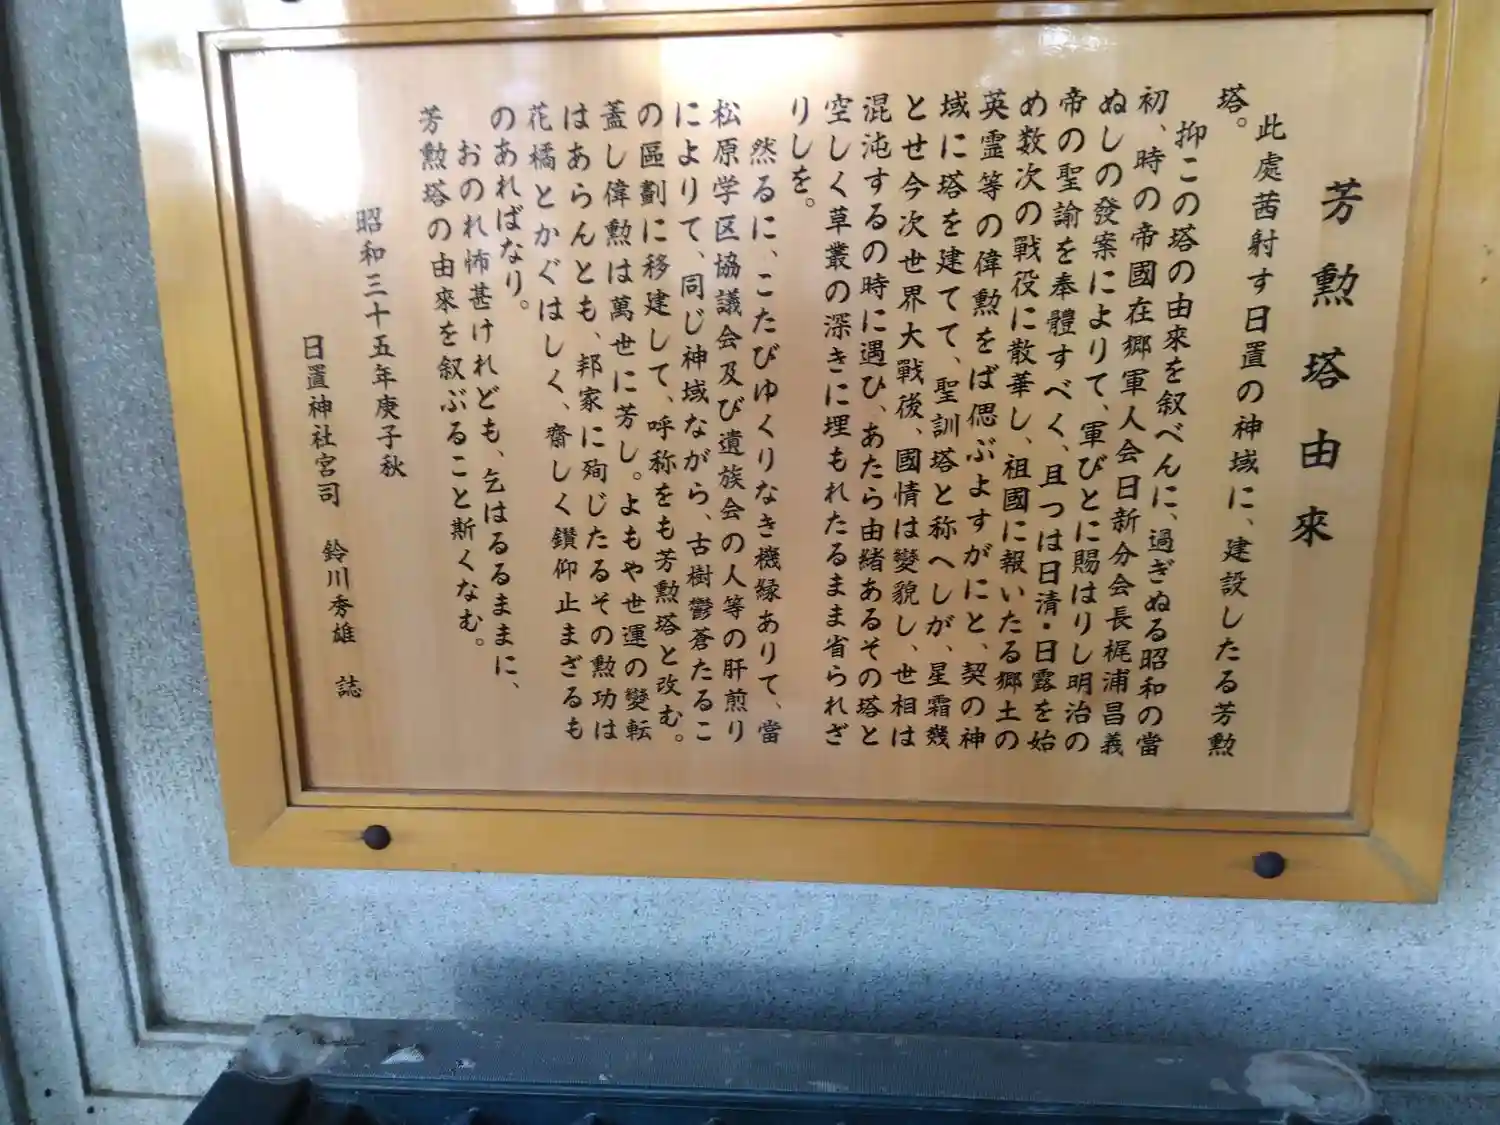 芳勲塔由來
此處茜射す日置の神域に、建設したる芳勲
塔。
抑この塔の由來を叙べんに、過ぎぬる昭和の當
初、時の帝國在郷軍人会日新分会長梶浦昌義
ぬしの發案によりて、軍びとに賜はりし明治の
帝の聖諭を奉體すべく、且つは日清・日露を始
め数次の戰役に散華し、祖國に報いたる郷土の
英霊等の偉勲をば偲ぶよすがにと、契の神
域に塔を建てて、聖訓塔と称へしが、星霜幾
とせ今次世界大戰後、國情は變貌し、世相は
混沌するの時に遇ひ、あたら由緒あるその塔と
空しく草叢の深きに埋もれたるまま省られざ
りしを。
然るに、こたびゆくりなき機縁ありて、當
松原学区協議会及び遺族会の人等の肝煎り
によりて、同じ神域ながら、古樹鬱蒼たるこ
の區劃に移建して、呼称をも芳勲塔と改む。
蓋し偉勲は萬世に芳し。よもや世運の變転
はあらんとも、邦家に殉じたるその勲功は
花橘とかぐはしく、齋しく鑽仰止まざるも
のあればなり。
おのれ怖甚けれども、乞はるるままに、
芳勲塔の由來を叙ぶること斯くなむ。
昭和三十五年庚子秋
日置神社宮司 鈴川秀雄 誌